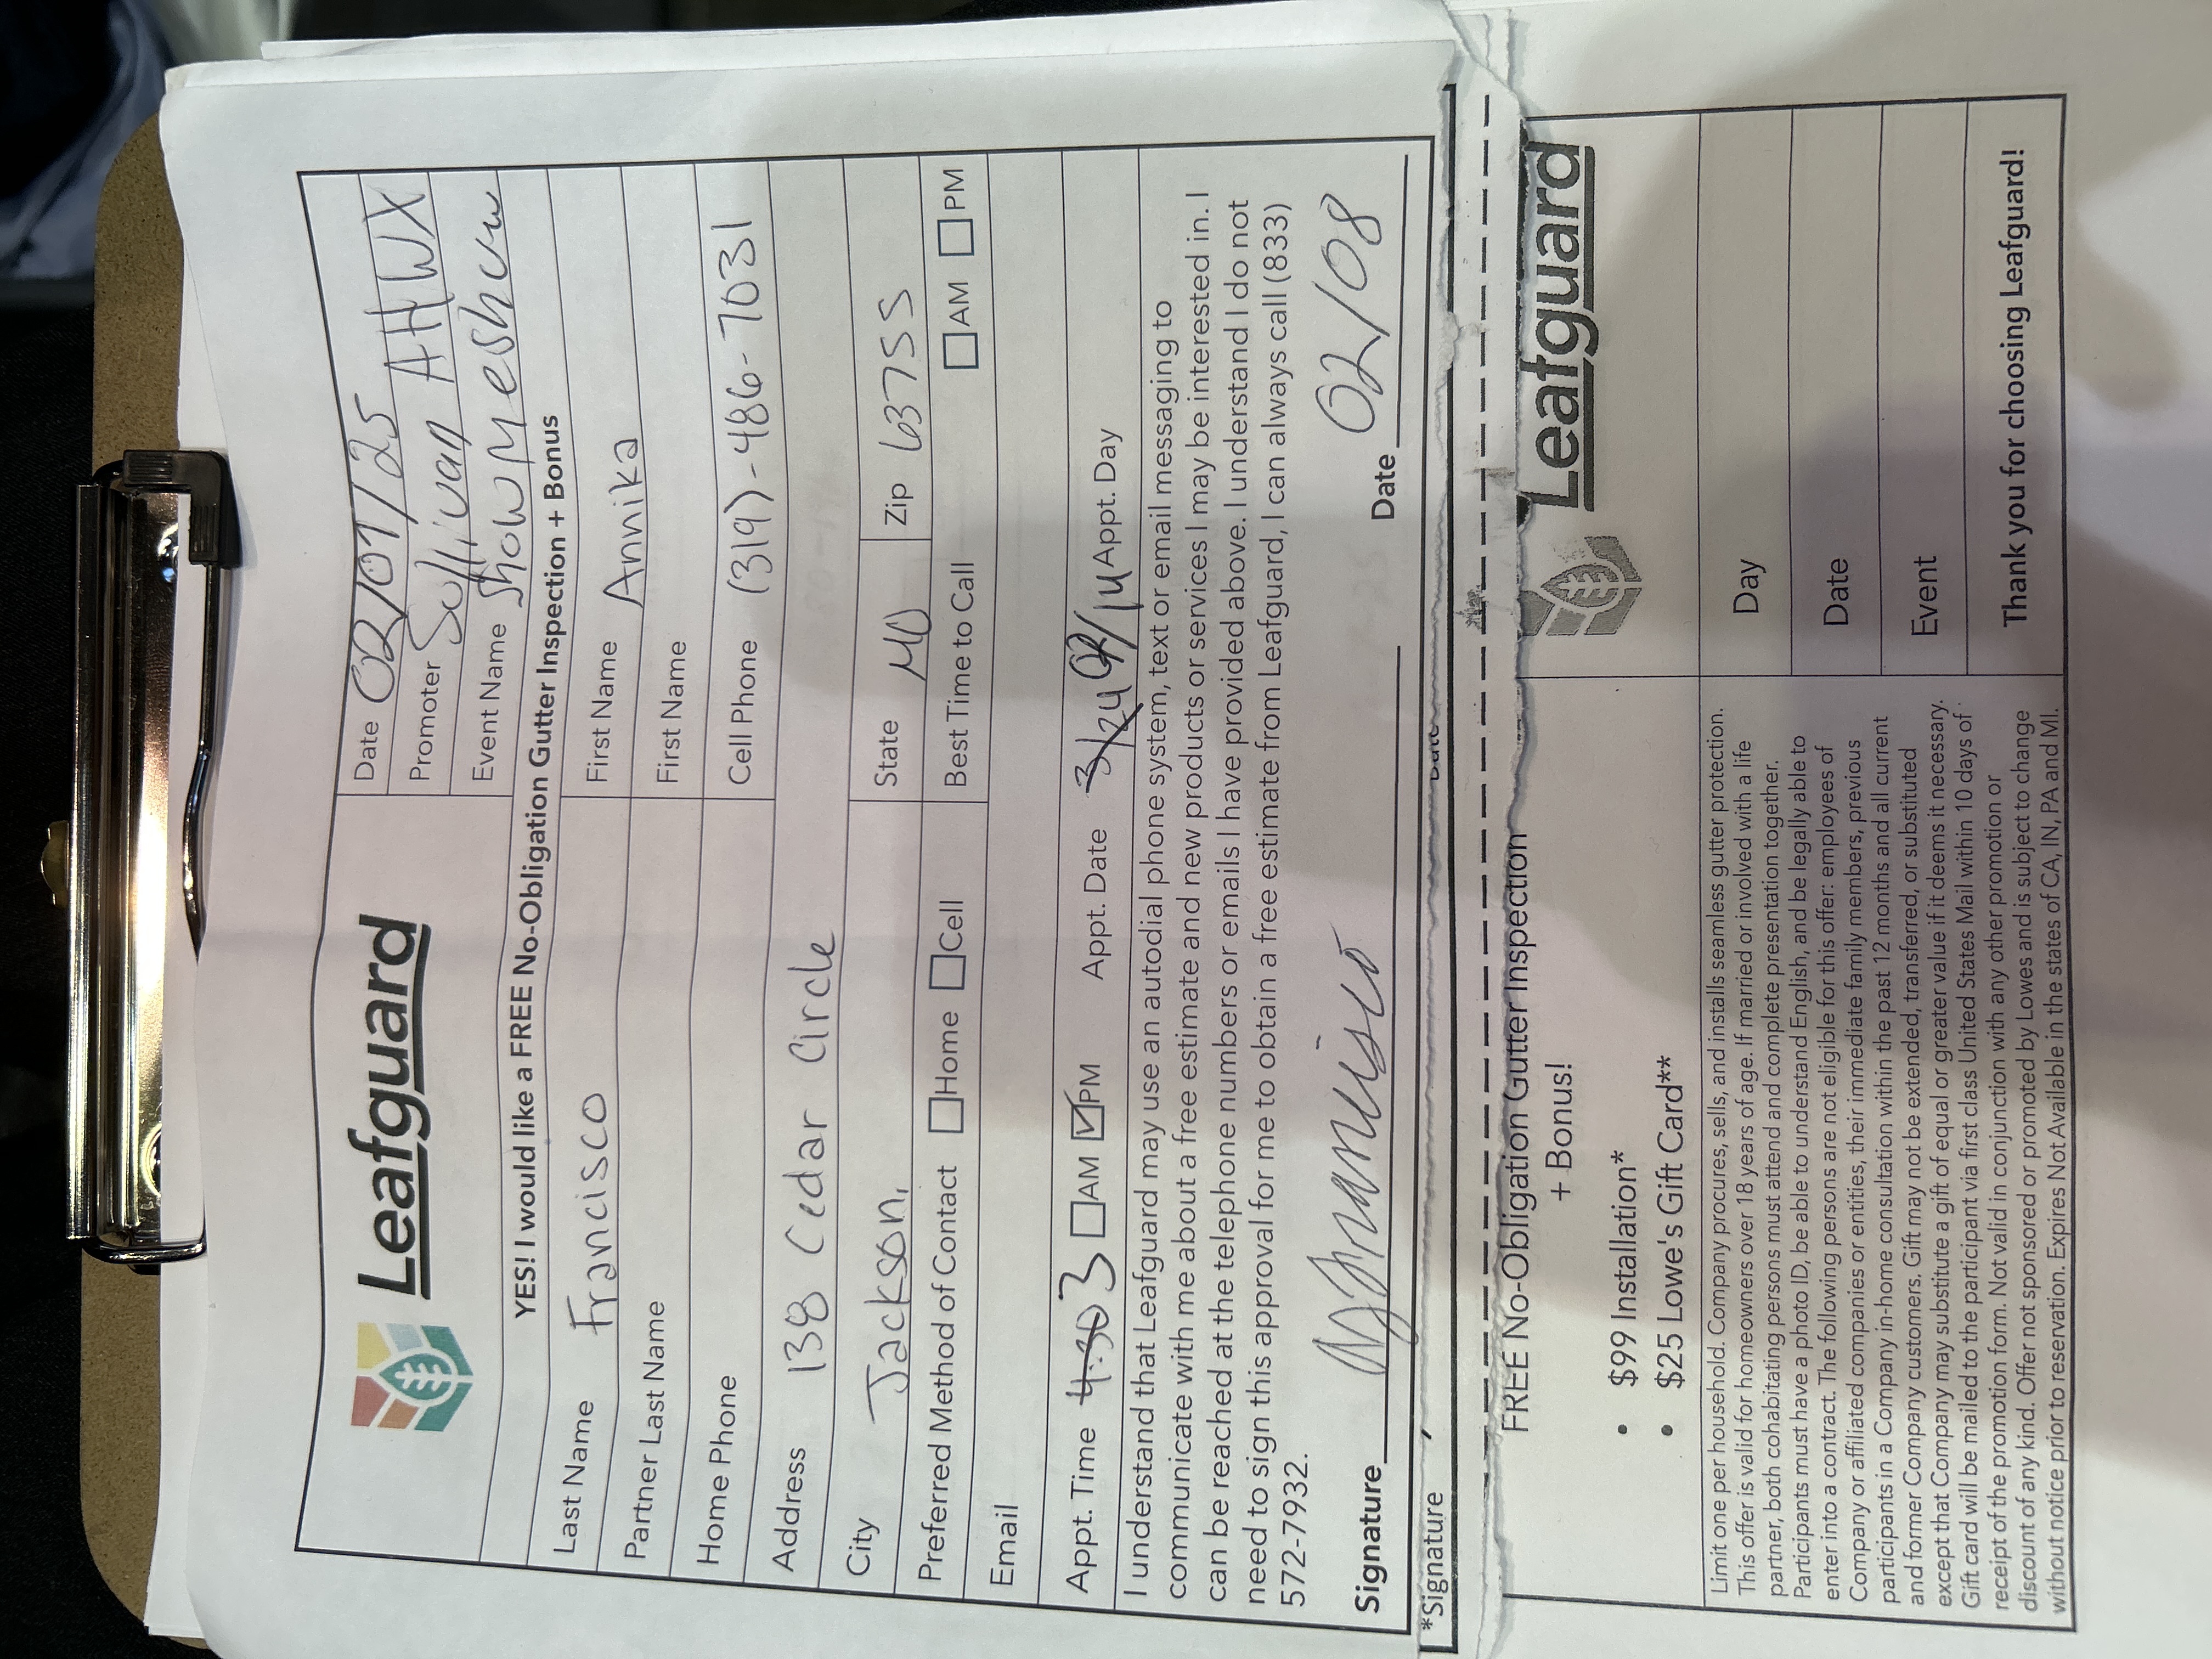 Leafguard
Date 02/07/25
Promoter Sullivan AHWX
Event Name Show Me Show
YES! I would like a FREE No-Obligation Gutter Inspection + Bonus
Last Name Francisco First Name Annika
Partner Last Name First Name
Home Phone Cell Phone (319)-486-7031
Address 138 Cedar Circle
City Jackson, State MO Zip 63755
Preferred Method of Contact Home Cell Best Time to Call AM PM
Email
Appt. Time 4:30 3 AM PM Appt. Date 3/24 02/14 Appt. Day
I understand that Leafguard may use an autodial phone system, text or email messaging to
communicate with me about a free estimate and new products or services I may be interested in. I
can be reached at the telephone numbers or emails I have provided above. I understand I do not
need to sign this approval for me to obtain a free estimate from Leafguard, I can always call (833)
572-7932.
Signature Francisco Date 02/08
*Signature Date
FREE No-Obligation Gutter Inspection
+ Bonus!
• $99 Installation*
• $25 Lowe's Gift Card**
Leafguard
Limit one per household. Company procures, sells, and installs seamless gutter protection.
This offer is valid for homeowners over 18 years of age. If married or involved with a life
partner, both cohabitating persons must attend and complete presentation together.
Participants must have a photo ID, be able to understand English, and be legally able to
enter into a contract. The following persons are not eligible for this offer: employees of
Company or affiliated companies or entities, their immediate family members, previous
participants in a Company in-home consultation within the past 12 months and all current
and former Company customers. Gift may not be extended, transferred, or substituted
except that Company may substitute a gift of equal or greater value if it deems it necessary.
Gift card will be mailed to the participant via first class United States Mail within 10 days of
receipt of the promotion form. Not valid in conjunction with any other promotion or
discount of any kind. Offer not sponsored or promoted by Lowes and is subject to change
without notice prior to reservation. Expires Not Available in the states of CA, IN, PA and MI.
Day
Date
Event
Thank you for choosing Leafguard!